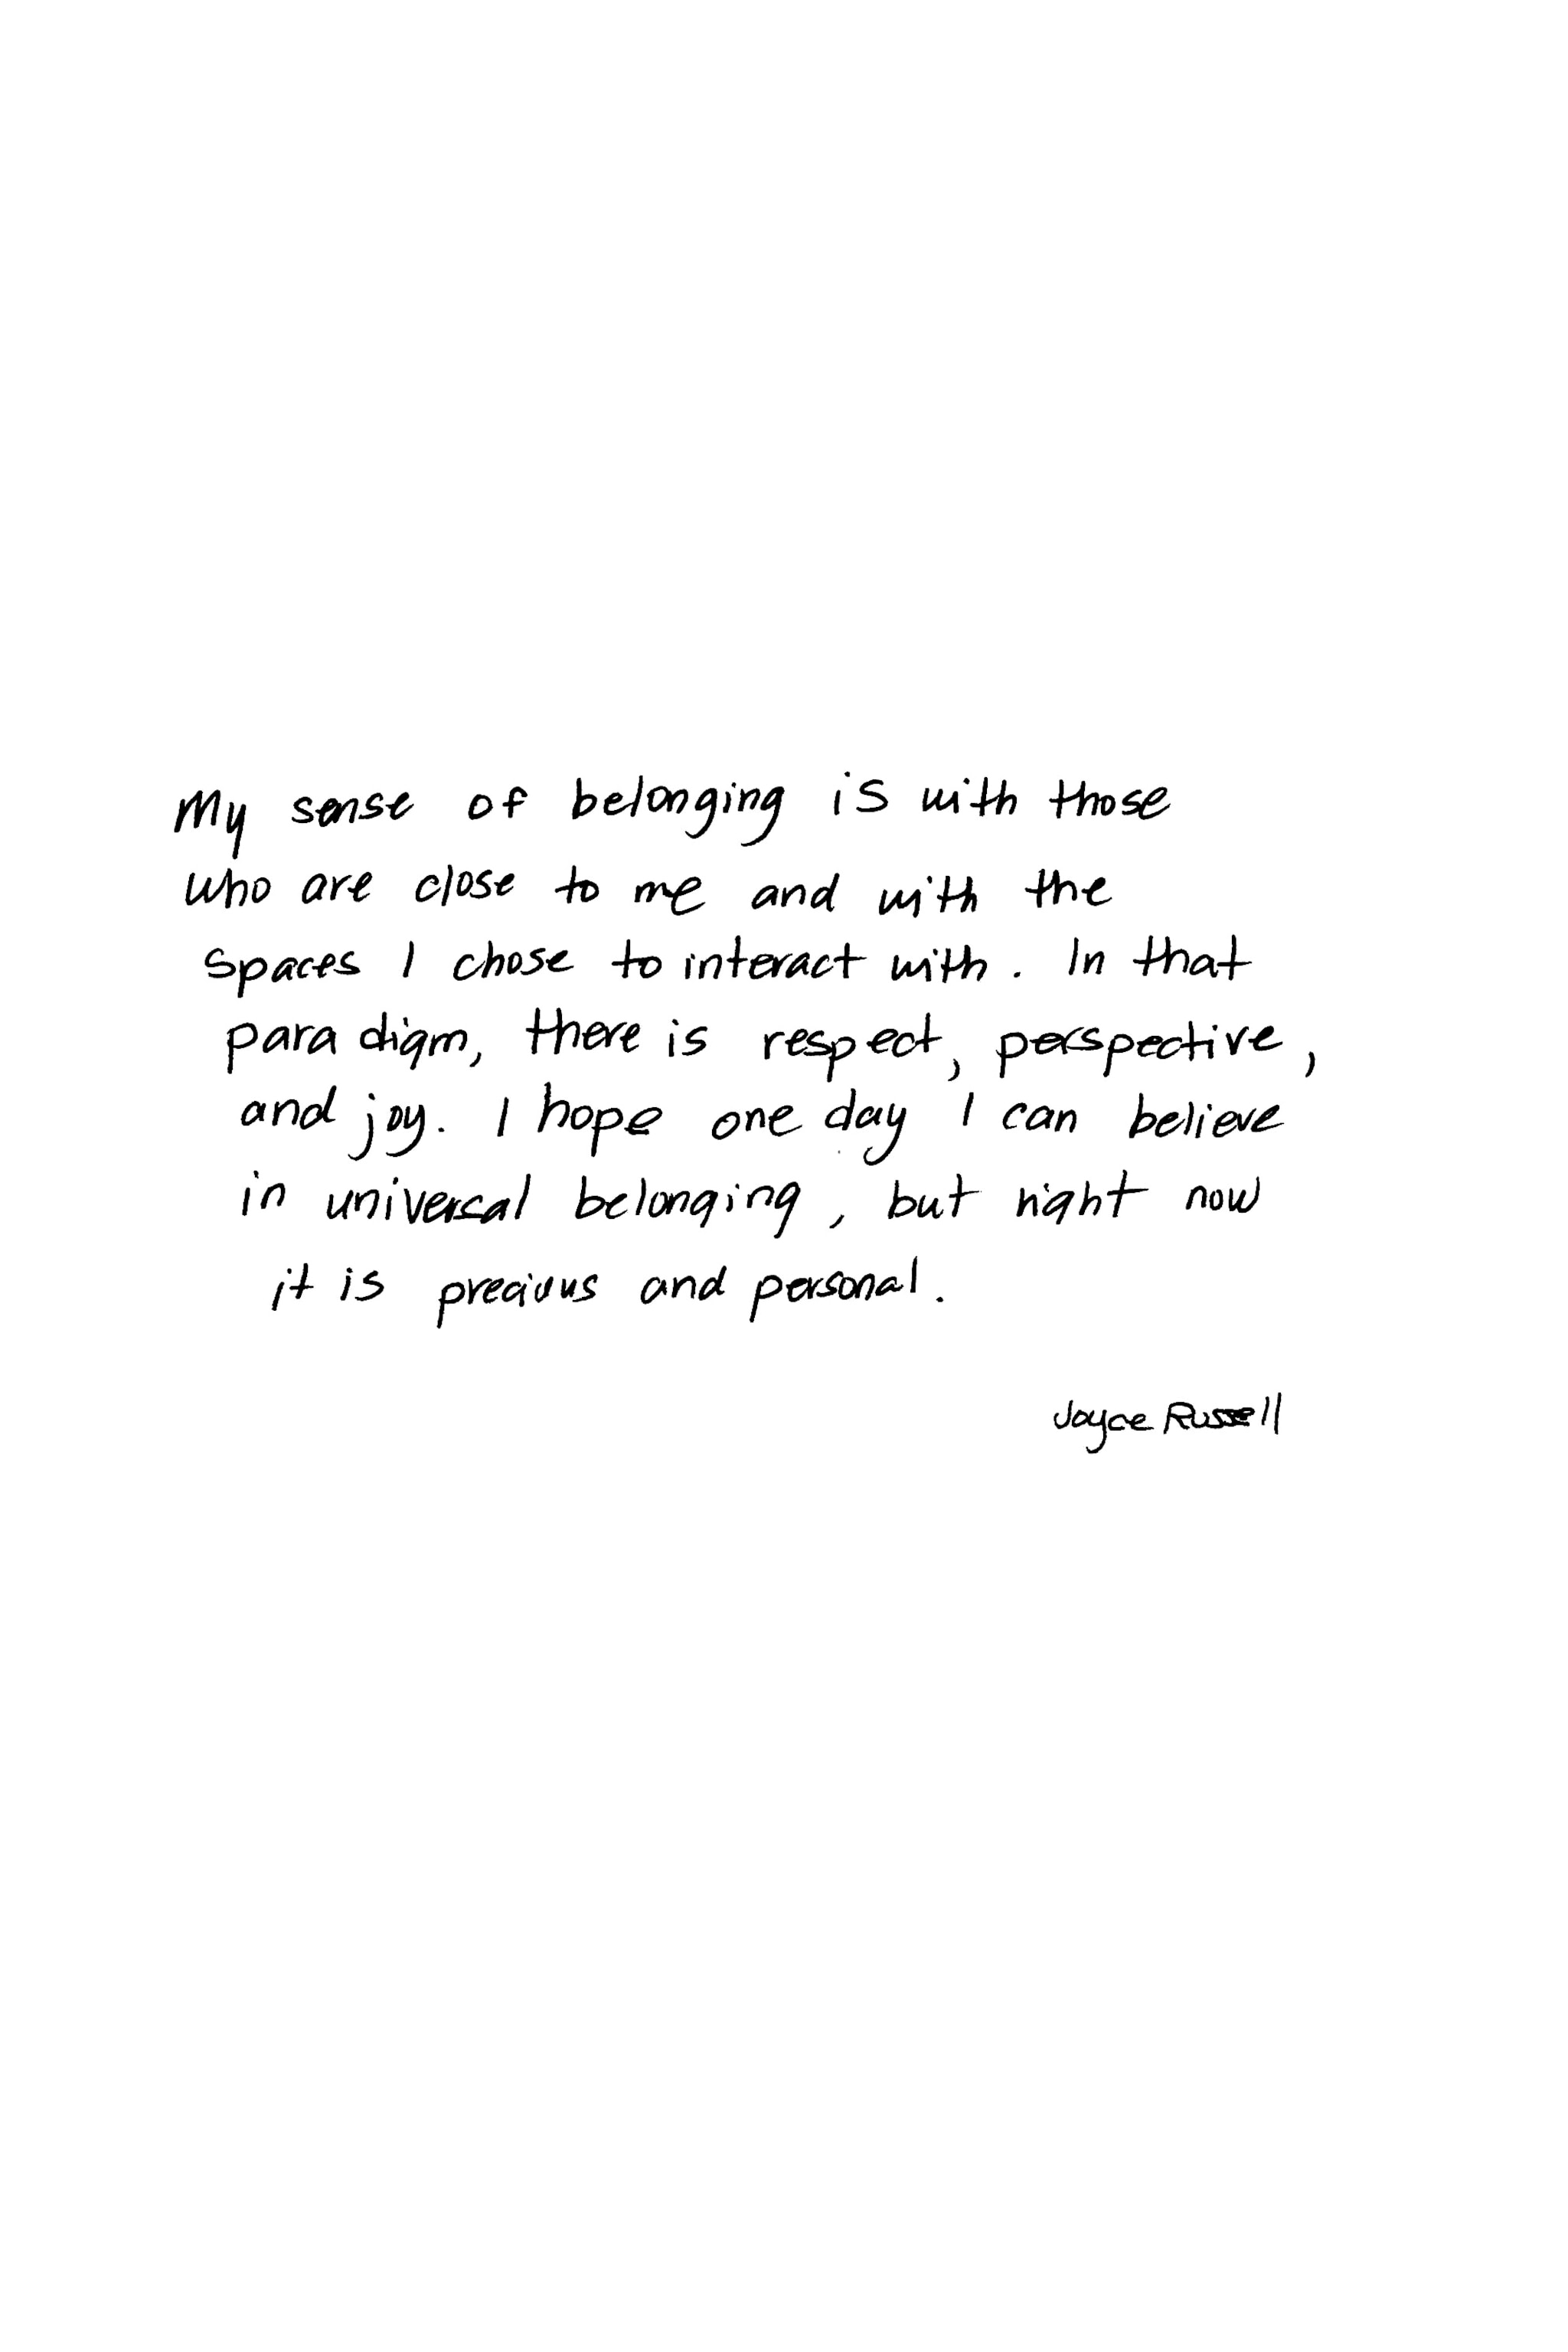 My sense of belonging is with those
who are close to me and with the
spaces I chose to interact with. In that
paradigm, there is respect, perspective,
and joy. I hope one day I can believe
in universal belonging, but right now
it is precious and personal.
Joyce Russell